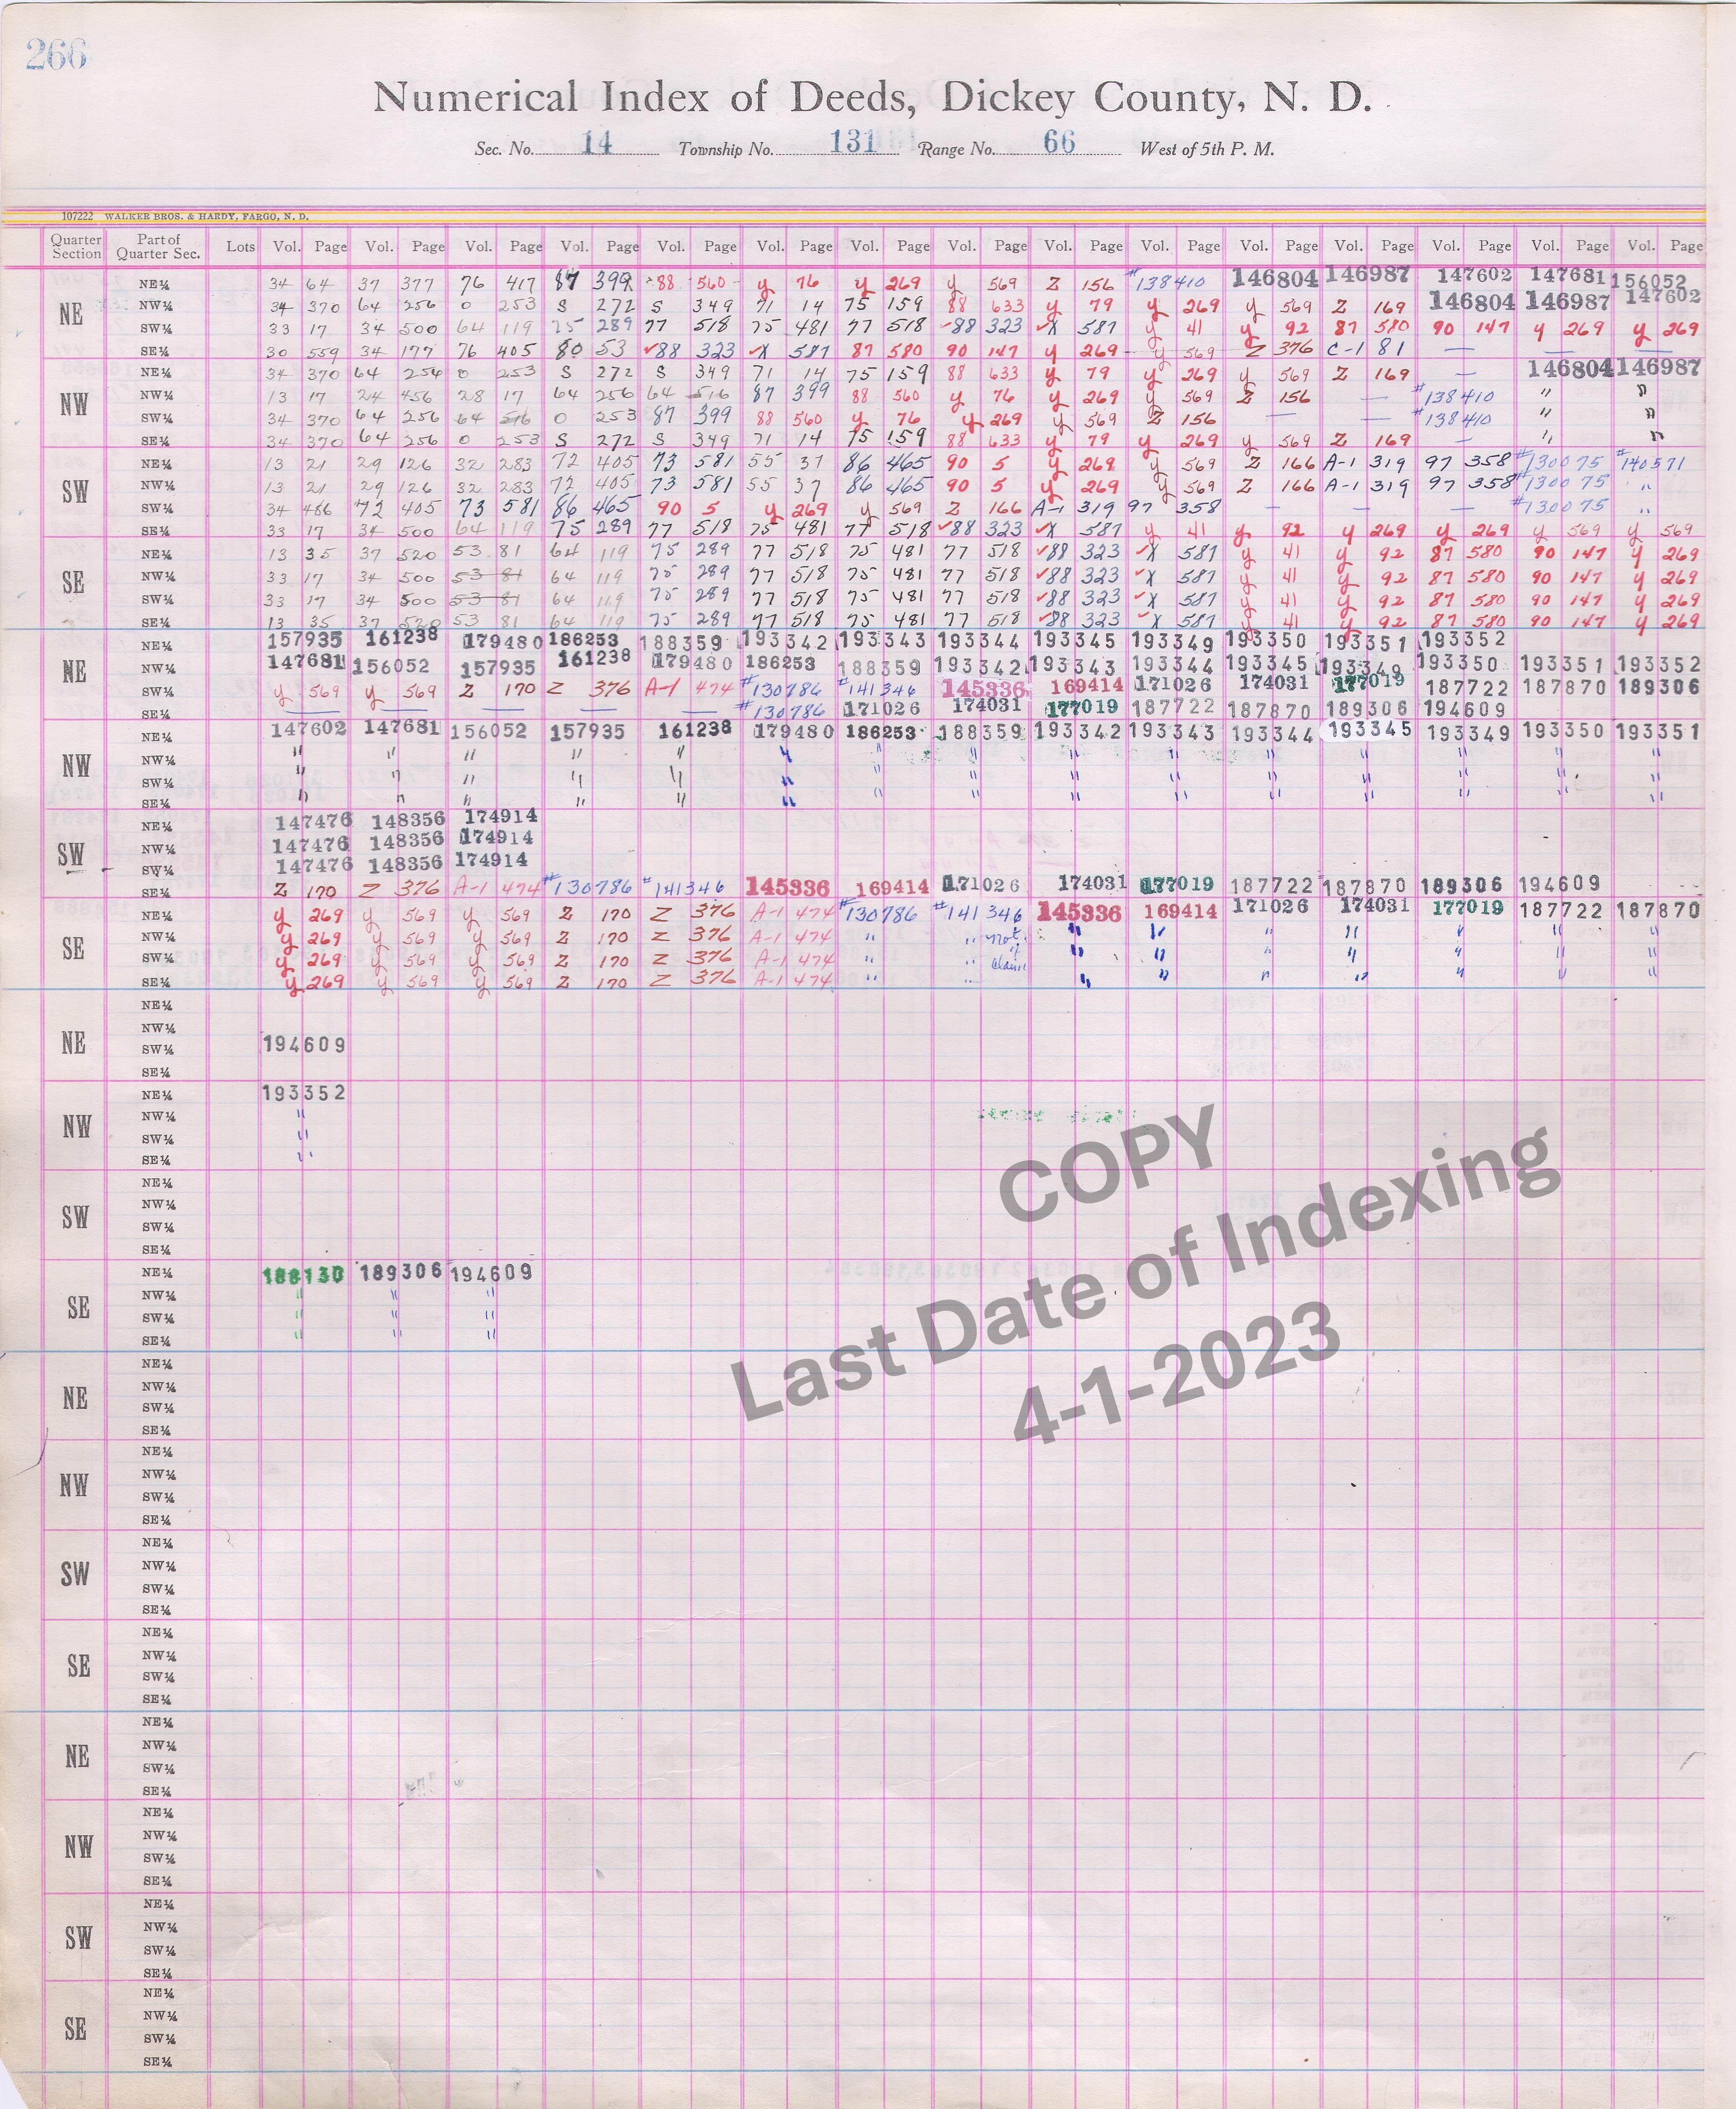 266
Numerical Index of Deeds, Dickey County, N. D.
Sec. No. 14 Township No. 131 Range No. 66 West of 5th P. M.
107222 WALKER BROS. & HARDY, FARGO, N. D.
Quarter Section Part of Quarter Sec. Lots Vol. Page Vol. Page Vol. Page Vol. Page Vol. Page Vol. Page Vol. Page Vol. Page Vol. Page Vol. Page Vol. Page Vol. Page Vol. Page Vol. Page Vol. Page
NE
NE¼ 34 64 37 377 76 417 87 399 88 560 y 76 y 269 y 569 Z 156 #138410 146804 146987 147602 147681 156052
NW¼ 34 370 64 256 0 253 S 272 S 349 71 14 75 159 88 633 y 79 y 269 y 569 Z 169 146804 146987 147602
SW¼ 33 17 34 500 64 119 75 289 77 518 75 481 77 518 ✓88 323 ✓X 587 y 41 y 92 87 580 90 147 y 269 y 269
SE¼ 30 559 34 177 76 405 80 53 ✓88 323 ✓X 587 87 580 90 147 y 269 y 569 Z 376 C-1 81 — — —
NW
NE¼ 34 370 64 256 0 253 S 272 S 349 71 14 75 159 88 633 y 79 y 269 y 569 Z 169 — 146804 146987
NW¼ 13 17 24 456 28 17 64 256 64 516 87 399 88 560 y 76 y 269 y 569 Z 156 — #138410 " "
SW¼ 34 370 64 256 64 516 0 253 87 399 88 560 y 76 y 269 y 569 Z 156 — — #138410 " "
SE¼ 34 370 64 256 0 253 S 272 S 349 71 14 75 159 88 633 y 79 y 269 y 569 Z 169 — " "
SW
NE¼ 13 21 29 126 32 283 72 405 73 581 55 37 86 465 90 5 y 269 y 569 Z 166 A-1 319 97 358 #130075 #140571
NW¼ 13 21 29 126 32 283 72 405 73 581 55 37 86 465 90 5 y 269 y 569 Z 166 A-1 319 97 358 #130075 "
SW¼ 34 486 72 405 73 581 86 465 90 5 y 269 y 569 Z 166 A-1 319 97 358 — — — #130075 "
SE¼ 33 17 34 500 64 119 75 289 77 518 75 481 77 518 ✓88 323 ✓X 587 y 41 y 92 y 269 y 269 y 569 y 569
SE
NE¼ 13 35 37 520 53 81 64 119 75 289 77 518 75 481 77 518 ✓88 323 ✓X 587 y 41 y 92 87 580 90 147 y 269
NW¼ 33 17 34 500 53 81 64 119 75 289 77 518 75 481 77 518 ✓88 323 ✓X 587 y 41 y 92 87 580 90 147 y 269
SW¼ 33 17 34 500 53 81 64 119 75 289 77 518 75 481 77 518 ✓88 323 ✓X 587 y 41 y 92 87 580 90 147 y 269
SE¼ 13 35 37 520 53 81 64 119 75 289 77 518 75 481 77 518 ✓88 323 ✓X 587 y 41 y 92 87 580 90 147 y 269
NE
NE¼ 157935 161238 179480 186253 188359 193342 193343 193344 193345 193349 193350 193351 193352
NW¼ 147681 156052 157935 161238 179480 186253 188359 193342 193343 193344 193345 193349 193350 193351 193352
SW¼ y 569 y 569 Z 170 Z 376 A-1 474 #130786 #141346 145336 169414 171026 174031 177019 187722 187870 189306
SE¼ — — — — — #130786 171026 174031 177019 187722 187870 189306 194609
NW
NE¼ 147602 147681 156052 157935 161238 179480 186253 188359 193342 193343 193344 193345 193349 193350 193351
NW¼ " " " " " " " " " " " " " " "
SW¼ " " " " " " " " " " " " " " "
SE¼ " " " " " " " " " " " " " " "
SW
NE¼ 147476 148356 174914
NW¼ 147476 148356 174914
SW¼ 147476 148356 174914
SE¼ Z 170 Z 376 A-1 474 #130786 #141346 145336 169414 171026 174031 177019 187722 187870 189306 194609
SE
NE¼ y 269 y 569 y 569 Z 170 Z 376 A-1 474 #130786 #141346 145336 169414 171026 174031 177019 187722 187870
NW¼ y 269 y 569 y 569 Z 170 Z 376 A-1 474 " " not. " " " " " " "
SW¼ y 269 y 569 y 569 Z 170 Z 376 A-1 474 " " of claim " " " " " " "
SE¼ y 269 y 569 y 569 Z 170 Z 376 A-1 474 " " " " " " " " "
NE
NE¼
NW¼
SW¼ 194609
SE¼
NW
NE¼ 193352
NW¼ "
SW¼ "
SE¼ "
SW
NE¼
NW¼
SW¼
SE¼
SE
NE¼ 188130 189306 194609
NW¼ " " "
SW¼ " " "
SE¼ " " "
COPY
Last Date of Indexing
4-1-2023
NE
NE¼
NW¼
SW¼
SE¼
NW
NE¼
NW¼
SW¼
SE¼
SW
NE¼
NW¼
SW¼
SE¼
SE
NE¼
NW¼
SW¼
SE¼
NE
NE¼
NW¼
SW¼
SE¼
NW
NE¼
NW¼
SW¼
SE¼
SW
NE¼
NW¼
SW¼
SE¼
SE
NE¼
NW¼
SW¼
SE¼